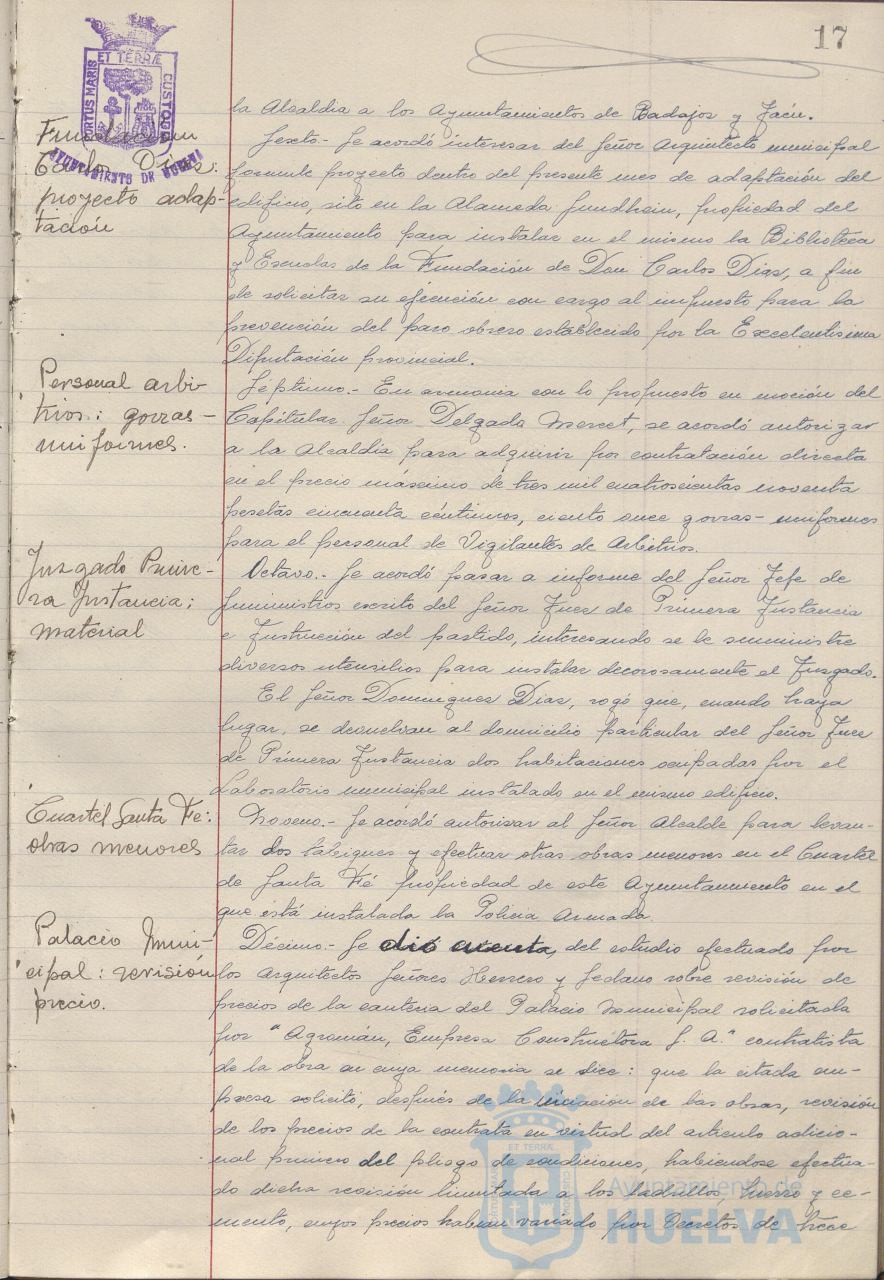 17
PORTUS MARIS ET TERRÆ CUSTODIA
AYUNTAMIENTO DE HUELVA
Fundación
Carlos Diaz:
proyecto adap-
tación
la Alcaldia a los Ayuntamientos de Badajoz y Jaén.
Sexto.- Se acordó interesar del Señor Arquitecto municipal
formule proyecto dentro del presente mes de adaptación del
edificio, sito en la Alameda Sundhein, propiedad del
Ayuntamiento para instalar en el mismo la Biblioteca
y Escuelas de la Fundación de Don Carlos Diaz, a fin
de solicitar su ejecución con cargo al impuesto para la
prevención del paro obrero establecido por la Excelentisima
Diputación provincial.
Personal arbi-
trios: gorras-
uniformes.
Septimo.- En armonia con lo propuesto en moción del
Capitular Señor Delgado Mercet, se acordó autorizar
a la Alcaldía para adquirir por contratación directa
en el precio máximo de tres mil cuatrocientas noventa
pesetas cincuenta céntimos, ciento once gorras-uniformes
para el personal de Vigilantes de Arbitrios.
Juzgado Prime-
ra Instancia;
material
Octavo.- Se acordó pasar a informe del Señor Jefe de
Suministros escrito del Señor Juez de Primera Instancia
e Instrucción del partido, interesando se le suministre
diversos utensilios para instalar decorosamente el Juzgado.
El Señor Dominguez Diaz, rogó que, cuando haya
lugar, se devuelvan al domicilio particular del Señor Juez
de Primera Instancia dos habitaciones ocupadas por el
Laboratorio municipal instalado en el mismo edificio.
Cuartel Santa Fe:
obras menores
Noveno.- Se acordó autorizar al Señor Alcalde para levan-
tar dos tabiques y efectuar otras obras menores en el Cuartel
de Santa Fé propiedad de este Ayuntamiento en el
que está instalada la Policia Armada.
Palacio Muni-
cipal: revisión
precio.
Décimo.- Se dió cuenta, del estudio efectuado por
los arquitectos Señores Herrero y Sedano sobre revisión de
precios de la canteria del Palacio Municipal solicitada
por "Agromán, Empresa Constructora S. A." contratista
de la obra en cuya memoria se dice: que la citada em-
presa solicitó, después de la iniciación de las obras, revisión
de los precios de la contrata en virtud del articulo adicio-
nal primero del pliego de condiciones, habiendose efectua-
do dicha revisión limitada a los ladrillos, hierro y ce-
mento, cuyos precios habian variado por Decretos de trece
ET TERRÆ
Ayuntamiento de
HUELVA